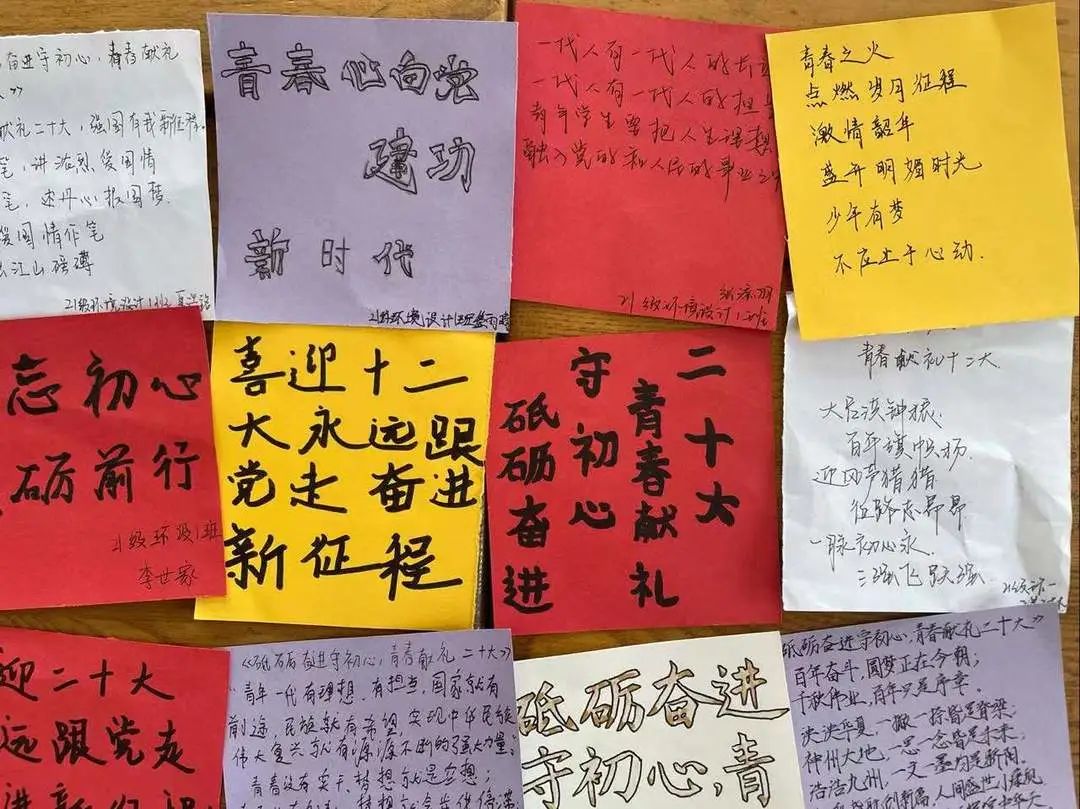 奋进守初心，青春献礼
献礼二十大，强国有我新征程。
笔，讲浓烈爱国情
笔，述丹心报国梦.
爱国情作笔
21级环境设计1班
青春心向党
建功
新时代
21级环境设计1班
一代人有一代人的长
一代人有一代人的担
青年学生要把人生理想
融入党的和人民的事业之
21级环境设计1班
青春之火
点燃岁月征程
激情韶年
盛开明媚时光
少年有梦
不应止于心动.
忘初心
砺前行
21级环设1班
李世家
喜迎十二
大永远跟
党走奋进
新征程
二十大
青春献礼
守初心
砥砺奋进
青春献礼十二大
百年旗帜扬.
征路志昂昂
一脉初心永.
21级环一
迎二十大
远跟党走
《砥砺奋进守初心，青春献礼二十大》
"青年一代有理想、有担当，国家就有
前途，民族就有希望，实现中华民族
伟大复兴就有源源不断的强大力量；
青春没有实干，梦想就是空想；
砥砺奋进
守初心，青
砥砺奋进守初心，青春献礼二十大》
百年奋斗，圆梦正在今朝；
千秋伟业，百年只是序章。
泱泱华夏，一撇一捺皆是脊梁；
神州大地，一思一念皆是未来；
浩浩九州，一文一墨均是新阁。